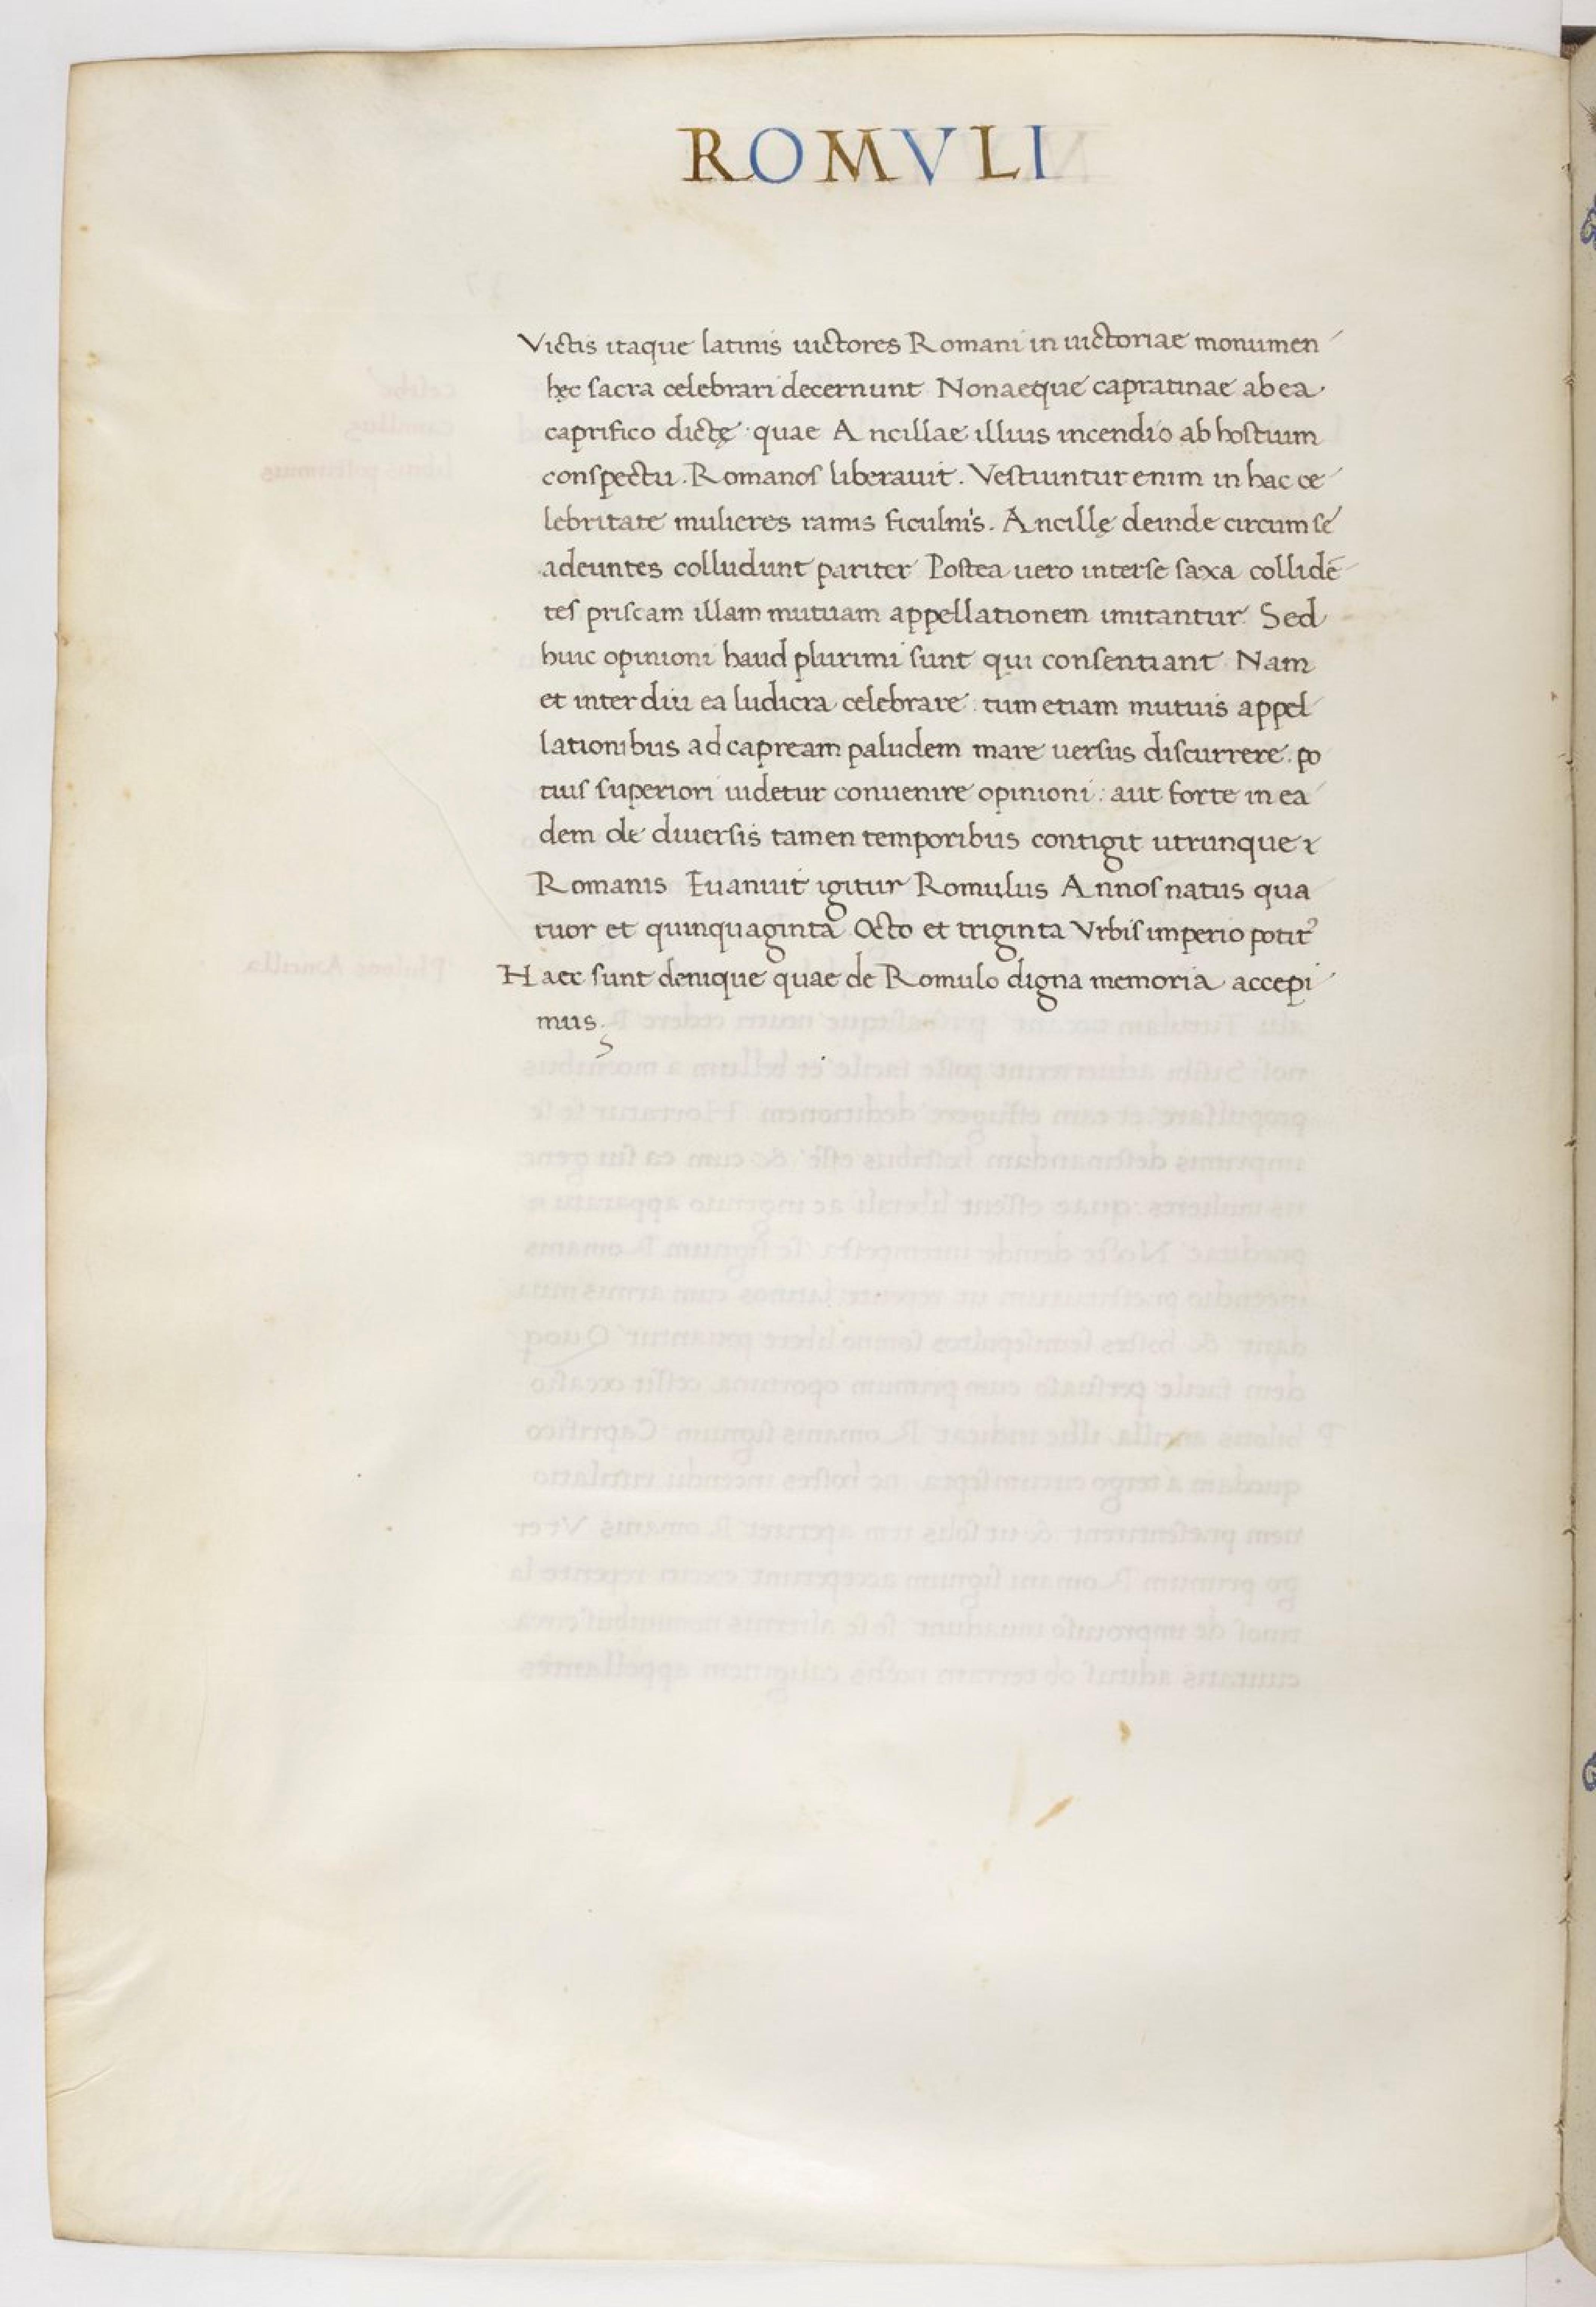 ROMVLI
Victis itaque latinis uictores Romani in uictoriae monumen
hęc sacra celebrari decernunt Nonaeque capratinae ab ea
caprifico dictę quae Ancillae illius incendio ab hostium
conspectu. Romanos liberauit. Vestiuntur enim in hac ce
lebritate mulieres ramis ficulnis. Ancillę deinde circum se
adeuntes colludunt pariter Postea uero inter se saxa collidē
tes priscam illam mutuam appellationem imitantur. Sed
huic opinioni haud plurimi sunt qui consentiant Nam
et interdiu ea ludicra celebrare: tum etiam mutuis appel
lationibus ad capream paludem mare uersus discurrere: po
tius superiori uidetur conuenire opinioni: aut forte in ea
dem de diuersis tamen temporibus contigit utrunque
Romanis Euanuit igitur Romulus Annos natus qua
tuor et quinquaginta Octo et triginta Vrbis imperio potit᾽
Haec sunt denique quae de Romulo digna memoria accepi
mus.